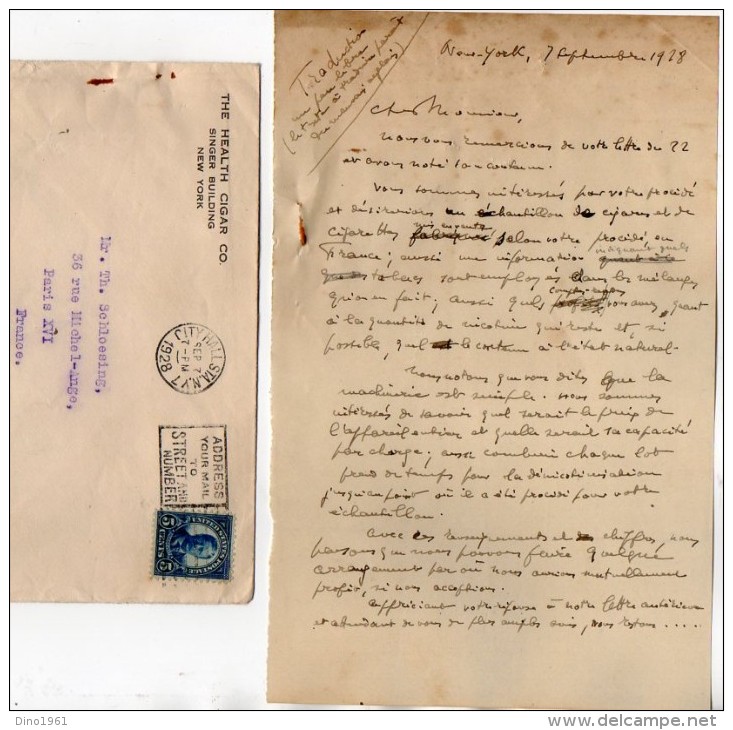 THE HEALTH CIGAR CO.
SINGER BUILDING
NEW YORK
Mr. Th. Schloesing,
36 rue Michel-Ange,
Paris XVI
France.
CITY HALL STA. N.Y.
SEP 7
7-PM
1928
ADDRESS
YOUR MAIL
TO
STREET AND
NUMBER
UNITED STATES POSTAGE
5 CENTS 5
Traduction
un peu libre
(le texte à traduire
du mauvais anglais)
New-York, 7 Septembre 1928
Cher Monsieur,
nous vous remercions de votre lettre du 22
et avons noté son contenu.
Vous sommes intéressés par votre procédé
et désirerions un échantillon de cigares et de
cigarettes selon votre procédé en
France; aussi une information indiquant quels
tabacs sont employés dans les mélanges
qu'on en fait; aussi quels vous avez, quant
à la quantité de nicotine qui reste et, si
possible, quel est le contenu à l'état naturel.
Nous notons que vous dites que la
machinerie est simple. Nous sommes
intéressés de savoir quel serait le prix de
l'appareil entier et quelle serait sa capacité
par charge; aussi combien chaque lot
prend de temps pour la dénicotinisation
jusqu'au point où il a été procédé pour votre
échantillon.
Avec ces renseignements et chiffres, nous
pensons que nous pouvons faire quelque
arrangement par où nous aurions mutuellement
profit, si nous acceptions.
Appréciant votre réponse à notre lettre antérieure
et attendant de vous de plus amples avis, nous restons .....
Dino1961
delcampe.net